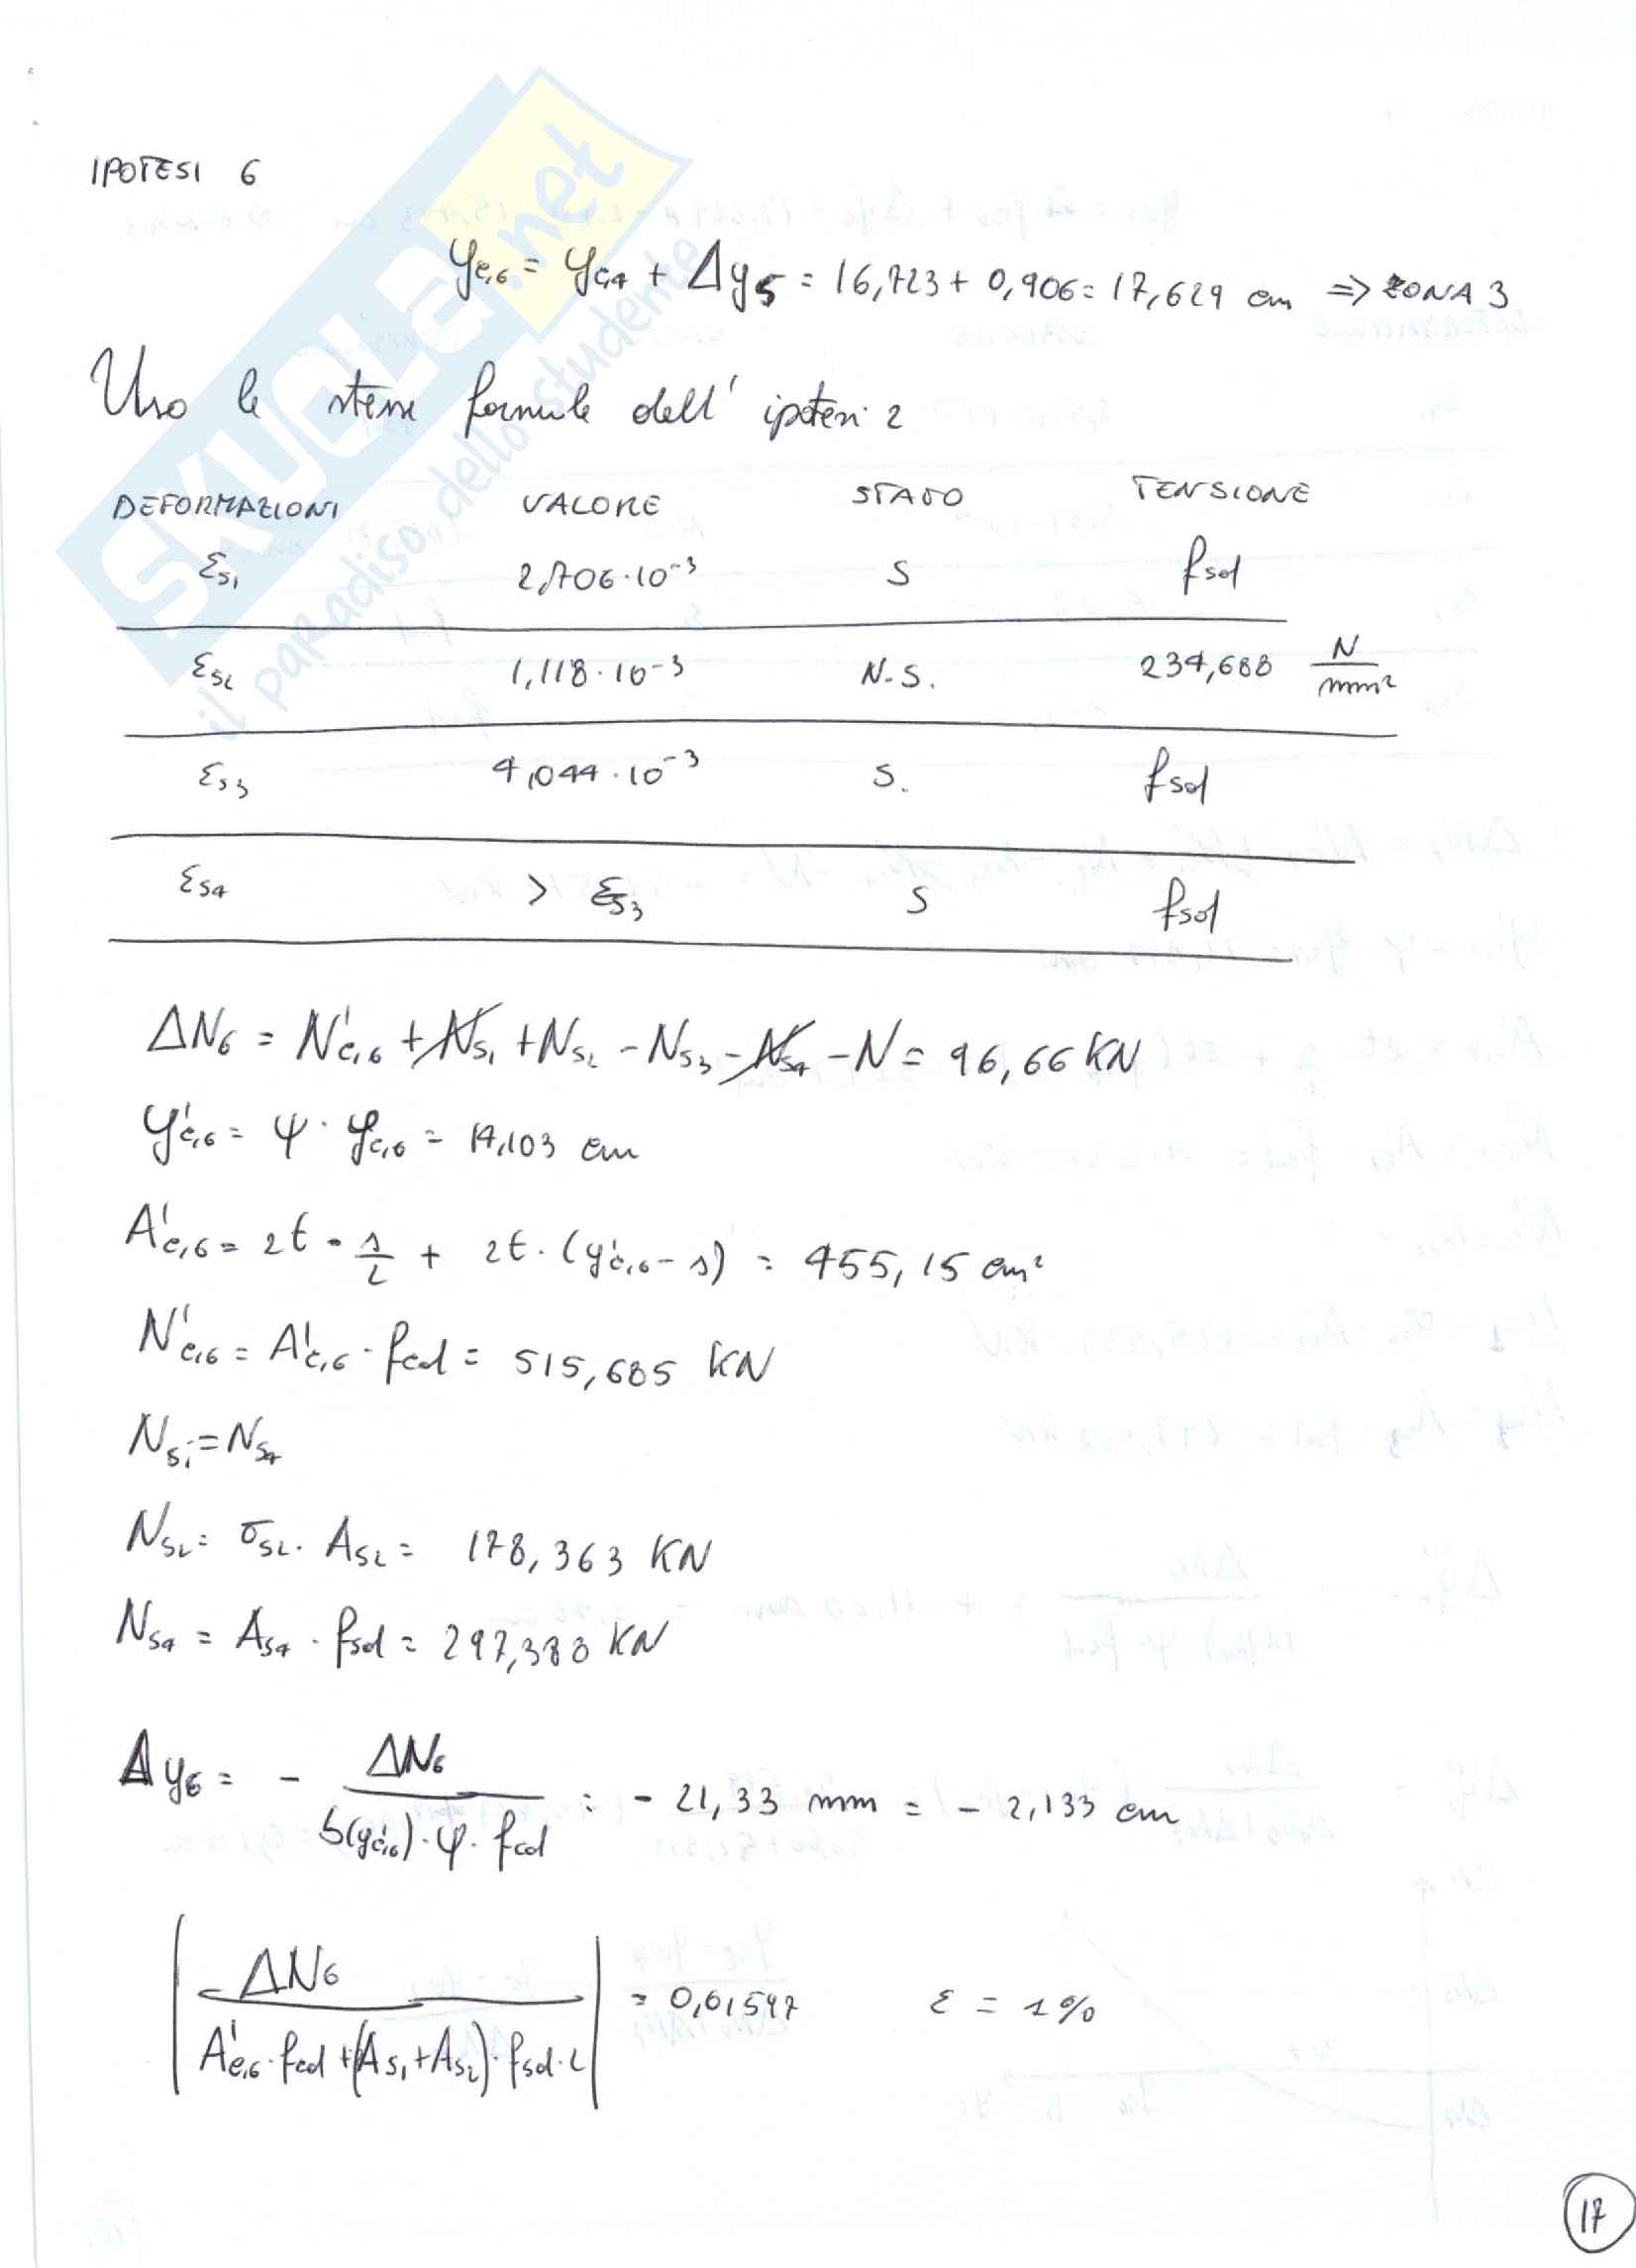 IPOTESI 6
yc,6 = yc,4 + Δy5 = 16,723 + 0,906 = 17,629 cm => ZONA 3
Uso le stesse formule dell' ipotesi 2
DEFORMAZIONI VALORE STATO TENSIONE
εs1 2,706·10⁻³ S fsd
εs2 1,118·10⁻³ N.S. 234,688 N/mm²
εs3 4,044·10⁻³ S. fsd
εs4 > εs3 S fsd
ΔN6 = N'c,6 + Ns1 + Ns2 - Ns3 - Ns4 - N = 96,66 KN
y'c,6 = ψ · yc,6 = 14,103 cm
A'c,6 = 2t · s/2 + 2t · (y'c,6 - s) = 455,15 cm²
N'c,6 = A'c,6 · fcd = 515,685 KN
Ns1 = Ns4
Ns2 = σs2 · As2 = 178,363 KN
Ns4 = As4 · fsd = 297,388 KN
Δy6 = - ΔN6 / b(y'c,6) · ψ · fcd = - 21,33 mm = - 2,133 cm
| ΔN6 / A'c,6 · fcd + (As1 + As2) · fsd · 2 | = 0,01597 ε = 1%
17
SKUOLA.net
il paradiso dello studente